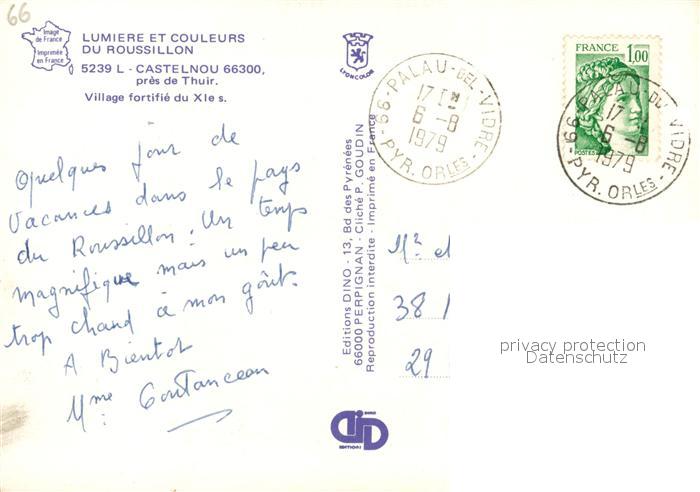 66
Image
de France
Imprimée
en France
LUMIERE ET COULEURS
DU ROUSSILLON
5239 L - CASTELNOU 66300,
près de Thuir.
Village fortifié du XIe s.
LYONCOLOR
Quelques jour de
vacances dans le pays
du Roussillon. Un temps
magnifique mais un peu
trop chaud à mon goût.
A Bientot
Mme Coutanceau
Editions DINO - 13, Bd des Pyrénées
66000 PERPIGNAN - Cliché P. GOUDIN
Reproduction interdite - Imprimé en France
DINO
EDITIONS
66 - PALAU-DEL-VIDRE
17 H
6 - 8
1979
PYR. ORLES
FRANCE
1,00
POSTES
66 - PALAU DU VIDRE
17
6 - 8
1979
PYR. ORLES
Mr et
38
29
privacy protection
Datenschutz